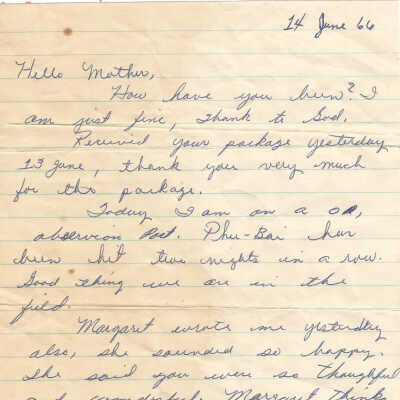 14 June 66
Hello Mother,
How have you been? I
am just fine, thank to God.
Received your package yesterday
13 June, thank you very much
for the package.
Today I am on a OP,
abservion Post. Phu-Bai has
been hit two nights in a row.
Good thing we are in the
field.
Margaret wrote me yesterday
also, she sounded so happy.
She said you were so thoughtful
and wonderful. Margaret thinks